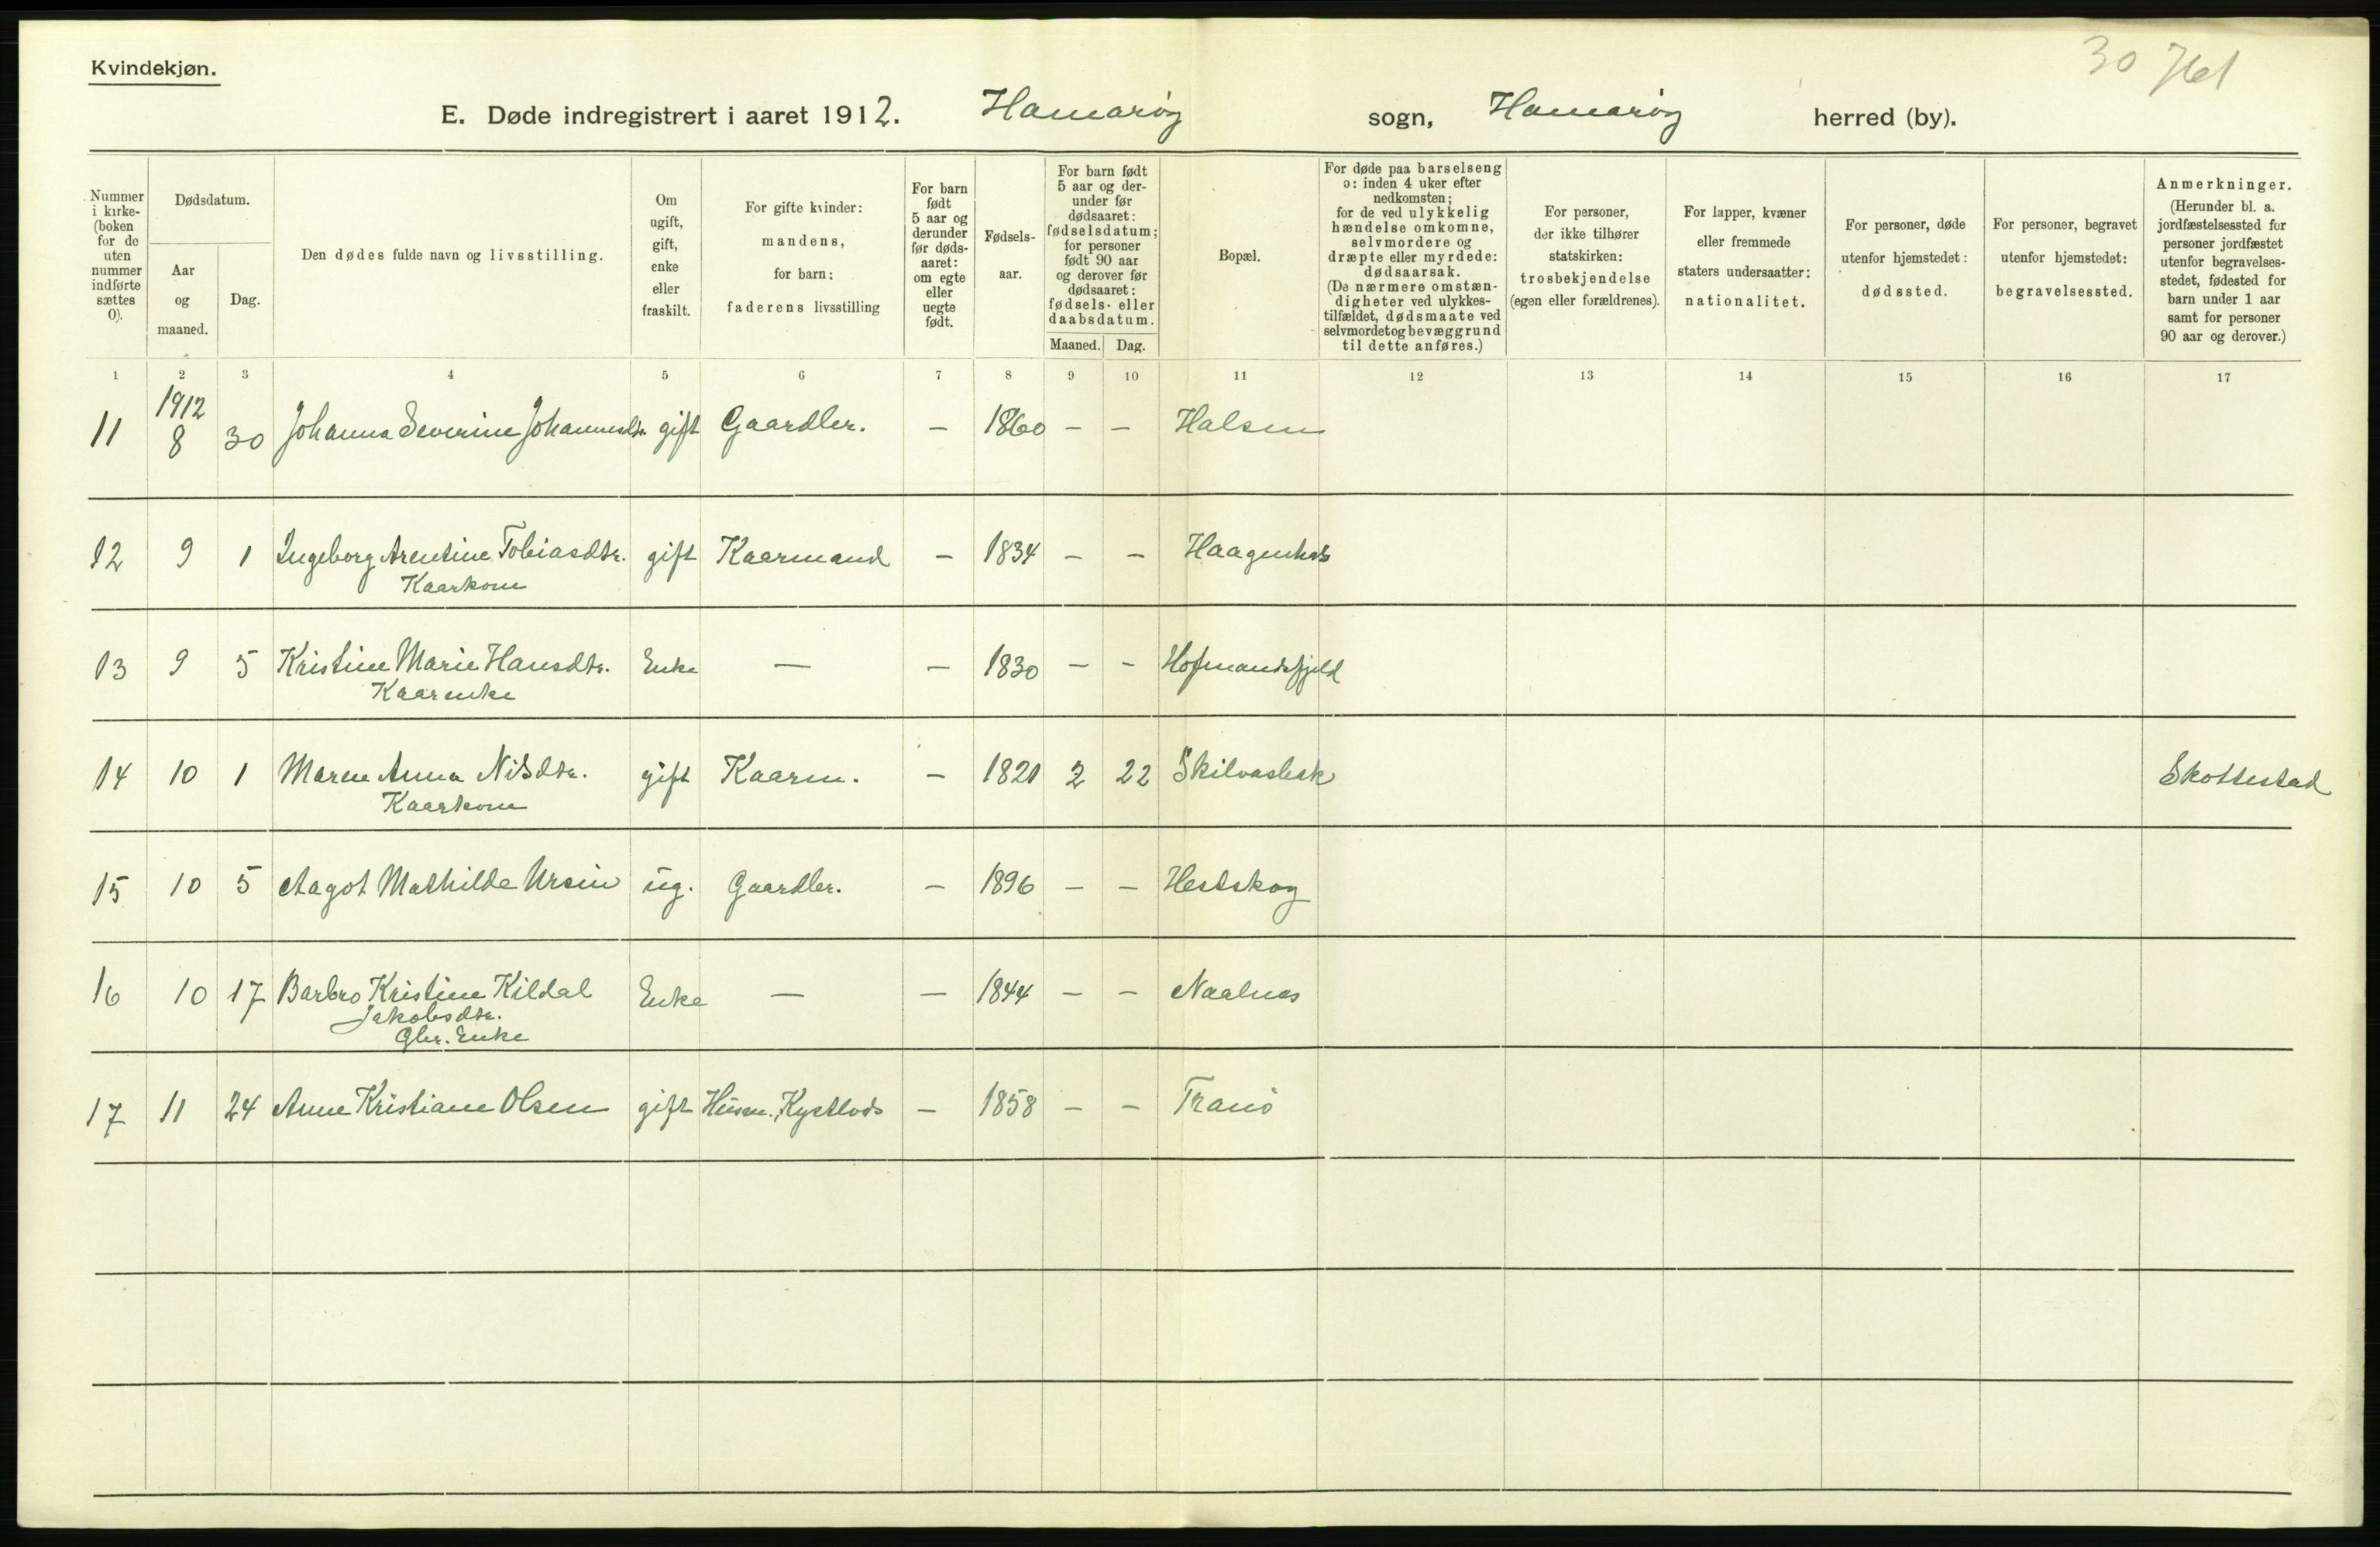 30 761
Kvindekjøn.
E. Døde indregistrert i aaret 1912. Hamarøy sogn, Hamarøy herred (by).
Nummer i kirke- (boken for de uten nummer indførte sættes 0).
Dødsdatum.
Aar og maaned.
Dag.
Den dødes fulde navn og livsstilling.
Om ugift, gift, enke eller fraskilt.
For gifte kvinder: mandens, for barn: faderens livsstilling
For barn født 5 aar og derunder før døds- aaret: om egte eller uegte født.
Fødsels- aar.
For barn født 5 aar og der- under før dødsaaret: fødselsdatum; for personer født 90 aar og derover før dødsaaret: fødsels- eller daabsdatum.
Maaned. Dag.
Bopæl.
For døde paa barselseng ɔ: inden 4 uker efter nedkomsten; for de ved ulykkelig hændelse omkomne, selvmordere og dræpte eller myrdede: dødsaarsak. (De nærmere omstæn- digheter ved ulykkes- tilfældet, dødsmaate ved selvmordet og bevæggrund til dette anføres.)
For personer, der ikke tilhører statskirken: trosbekjendelse (egen eller forældrenes).
For lapper, kvæner eller fremmede staters undersaatter: nationalitet.
For personer, døde utenfor hjemstedet: dødssted.
For personer, begravet utenfor hjemstedet: begravelsessted.
Anmerkninger. (Herunder bl. a. jordfæstelsessted for personer jordfæstet utenfor begravelses- stedet, fødested for barn under 1 aar samt for personer 90 aar og derover.)
1 2 3 4 5 6 7 8 9 10 11 12 13 14 15 16 17
1912
11 8 30 Johanna Severine Johannesdtr. gift Gaardbr. — 1860 — — Halsen
12 9 1 Ingeborg Arentine Tobiasdtr. gift Kaarmand — 1834 — —
Kaarkone
13 9 5 Kristine Marie Hansdtr. Enke — — 1830 — — Hofmandsfjeld
Kaarenke
14 10 1 Maren Anna Nilsdtr. gift Kaarm. — 1821 2 22 Skilvasbak Skottestad
Kaarkone
15 10 5 Aagot Mathilde Ursin ug. Gaardbr. — 1896 — — Hestskog
16 10 17 Barbro Kristine Kildal Enke — — 1844 — — Naalnes
Jakobsdtr.
Gbr. Enke
17 11 24 Anne Kristiane Olsen gift Husm. Kystlods — 1858 — — Tranö